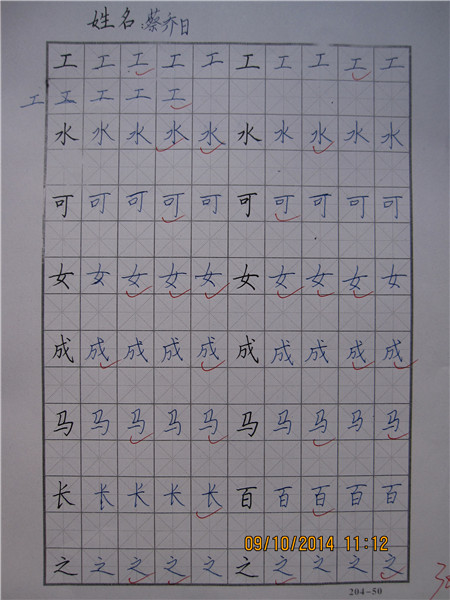 姓名:蔡乔日
工工工工工工工工工工
工工工工工
水水水水水水水水水水
可可可可可可可可可可
女女女女女女女女女女
成成成成成成成成成成
马马马马马马马马马马
长长长长长百百百百百
09/10/2014 11:12
之之之之之之之之之之
204-50